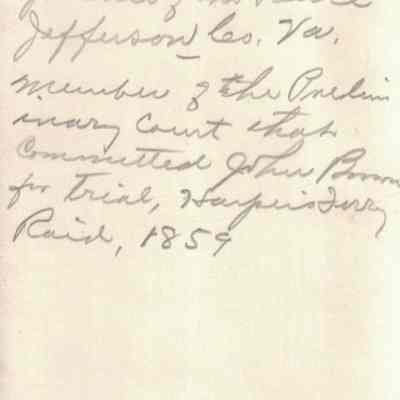 Jefferson Co. Va.
Member of the Prelim
inary Court that
Committed John Brown
for Trial, Harpers Ferry
Raid, 1859